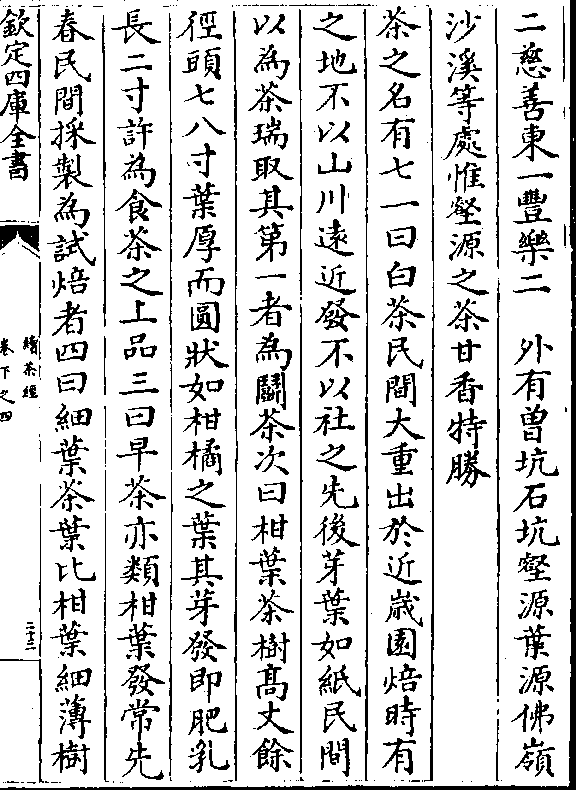 二慈善東一豐樂二　外有曽坑石坑壑源葉源佛嶺
沙溪等處惟壑源之茶甘香特勝
茶之名有七一曰白茶民間大重出於近歳園焙時有
之地不以山川逺近發不以社之先後芽葉如紙民間
以為茶瑞取其第一者為鬬茶次曰柑葉茶樹髙丈餘
徑頭七八寸葉厚而圓狀如柑橘之葉其芽發即肥乳
長二寸許為食茶之上品三曰早茶亦類柑葉發常先
春民間採製為試焙者四曰細葉茶葉比柑葉細薄樹
欽定四庫全書
續茶經
卷下之四
二十三